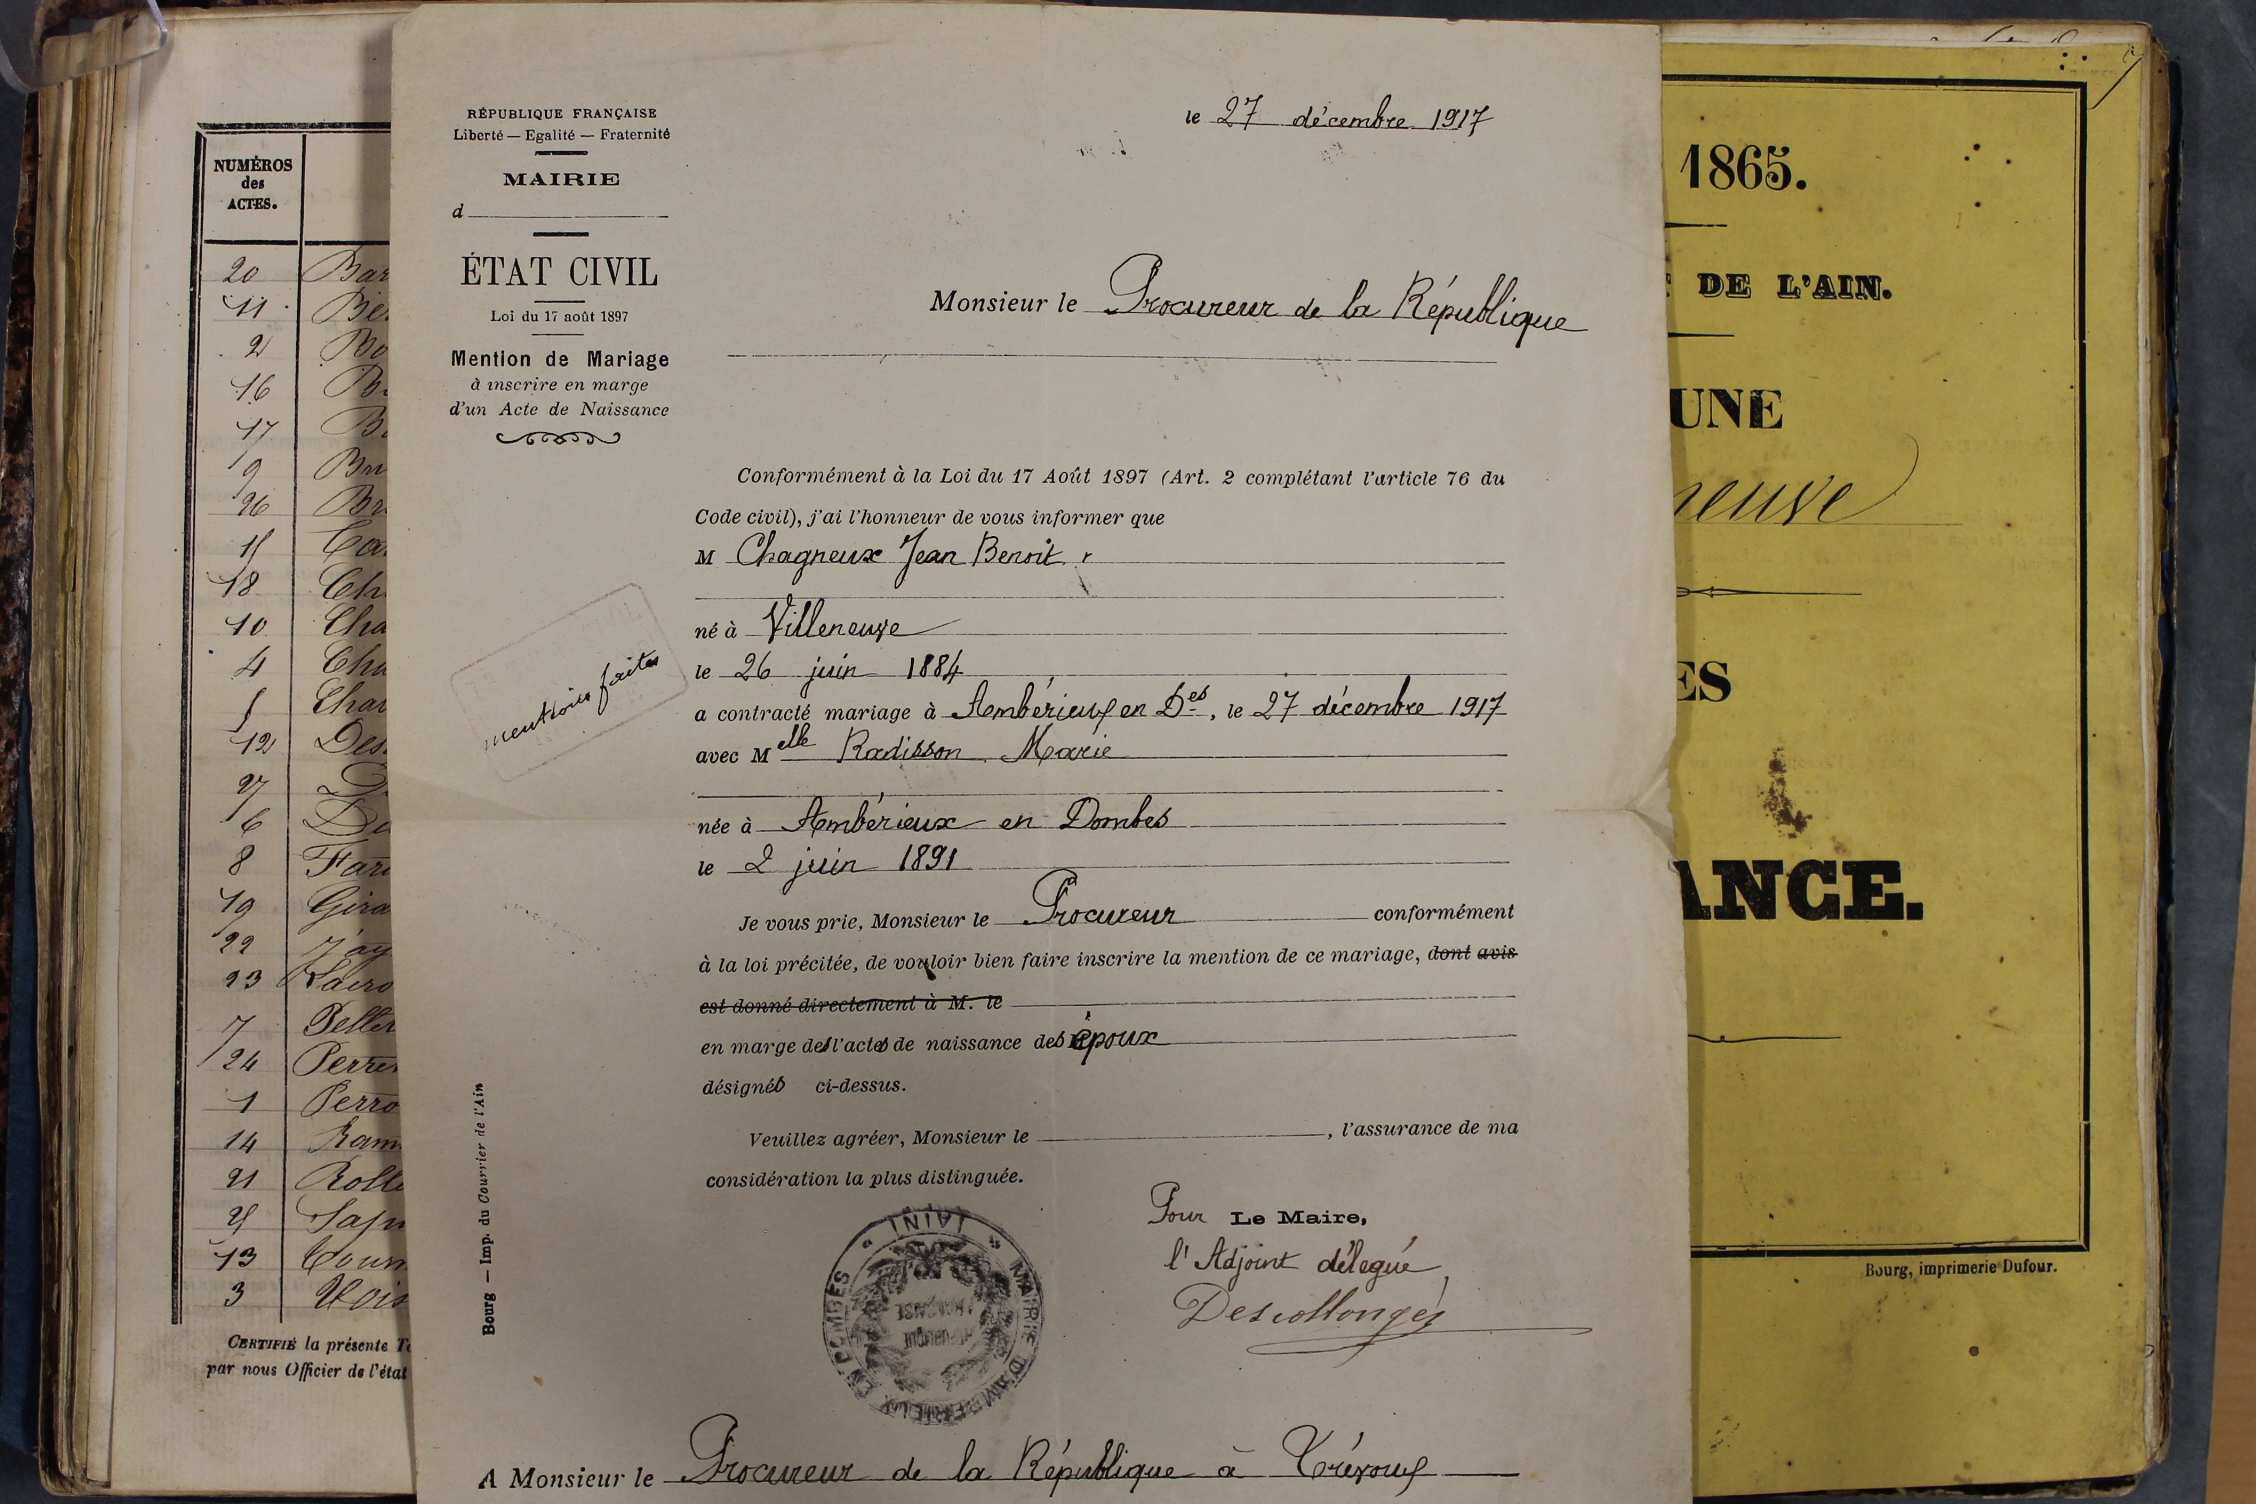 NUMÉROS
des
ACTES.
20 Bar
11
2 Bo
16
17
9
26
15
18 Ch
10 Cha
4 Cha
5 Char
12 Des
27
6
8 Far
19 Gira
22
23
7 Pelle
24 Perre
1 Perro
14 Ram
21
25
13
3
CERTIFIÉ la présente
par nous Officier de l'état
RÉPUBLIQUE FRANÇAISE
Liberté — Egalité — Fraternité
MAIRIE
d
ÉTAT CIVIL
Loi du 17 août 1897
Mention de Mariage
à inscrire en marge
d'un Acte de Naissance
mentions faites
Bourg — Imp. du Courrier de l'Ain
le 27 décembre 1917
Monsieur le Procureur de la République
Conformément à la Loi du 17 Août 1897 (Art. 2 complétant l'article 76 du
Code civil), j'ai l'honneur de vous informer que
M Chagneux Jean Benoit
né à Villeneuve
le 26 juin 1884
a contracté mariage à Ambérieux en Des, le 27 décembre 1917
avec Melle Radisson Marie
née à Ambérieux en Dombes
le 2 juin 1891
Je vous prie, Monsieur le Procureur conformément
à la loi précitée, de vouloir bien faire inscrire la mention de ce mariage, dont avis
est donné directement à M. le
en marge des l'actes de naissance des époux
désignés ci-dessus.
Veuillez agréer, Monsieur le , l'assurance de ma
considération la plus distinguée.
Pour Le Maire,
l'Adjoint délegué
Descollonges
MAIRIE D'AMBERIEUX EN DOMBES (AIN)
A Monsieur le Procureur de la République à Trévoux
1865.
DE L'AIN.
UNE
neuve
ES
ANCE.
Bourg, imprimerie Dufour.